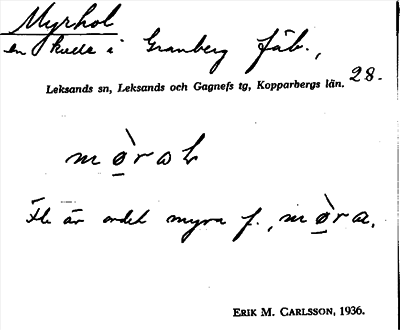 Myrhol
en kude i Granberg fäb.,
Leksands sn, Leksands och Gagnefs tg, Kopparbergs län. 28.
mø̱̀rɷ
är ordet myra f., mø̱̀ra.
ERIK M. CARLSSON, 1936.